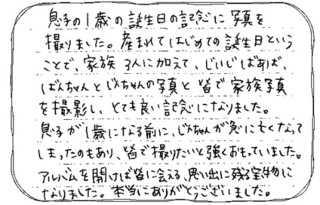 息子の1歳の誕生日の記念に写真を
撮りました。産まれてはじめての誕生日という
ことで、家族3人に加えて、じいじばあば、
ばんちゃんとじんちゃんの写真と皆で家族写真
を撮影し、とても良い記念になりました。
息子が1歳になる前に、じんちゃんが急に亡くなって
しまったのもあり、皆で撮りたいと強くおもっていました。
アルバムを開けば皆に会える、思い出に残る宝物に
なりました。本当にありがとうございました。